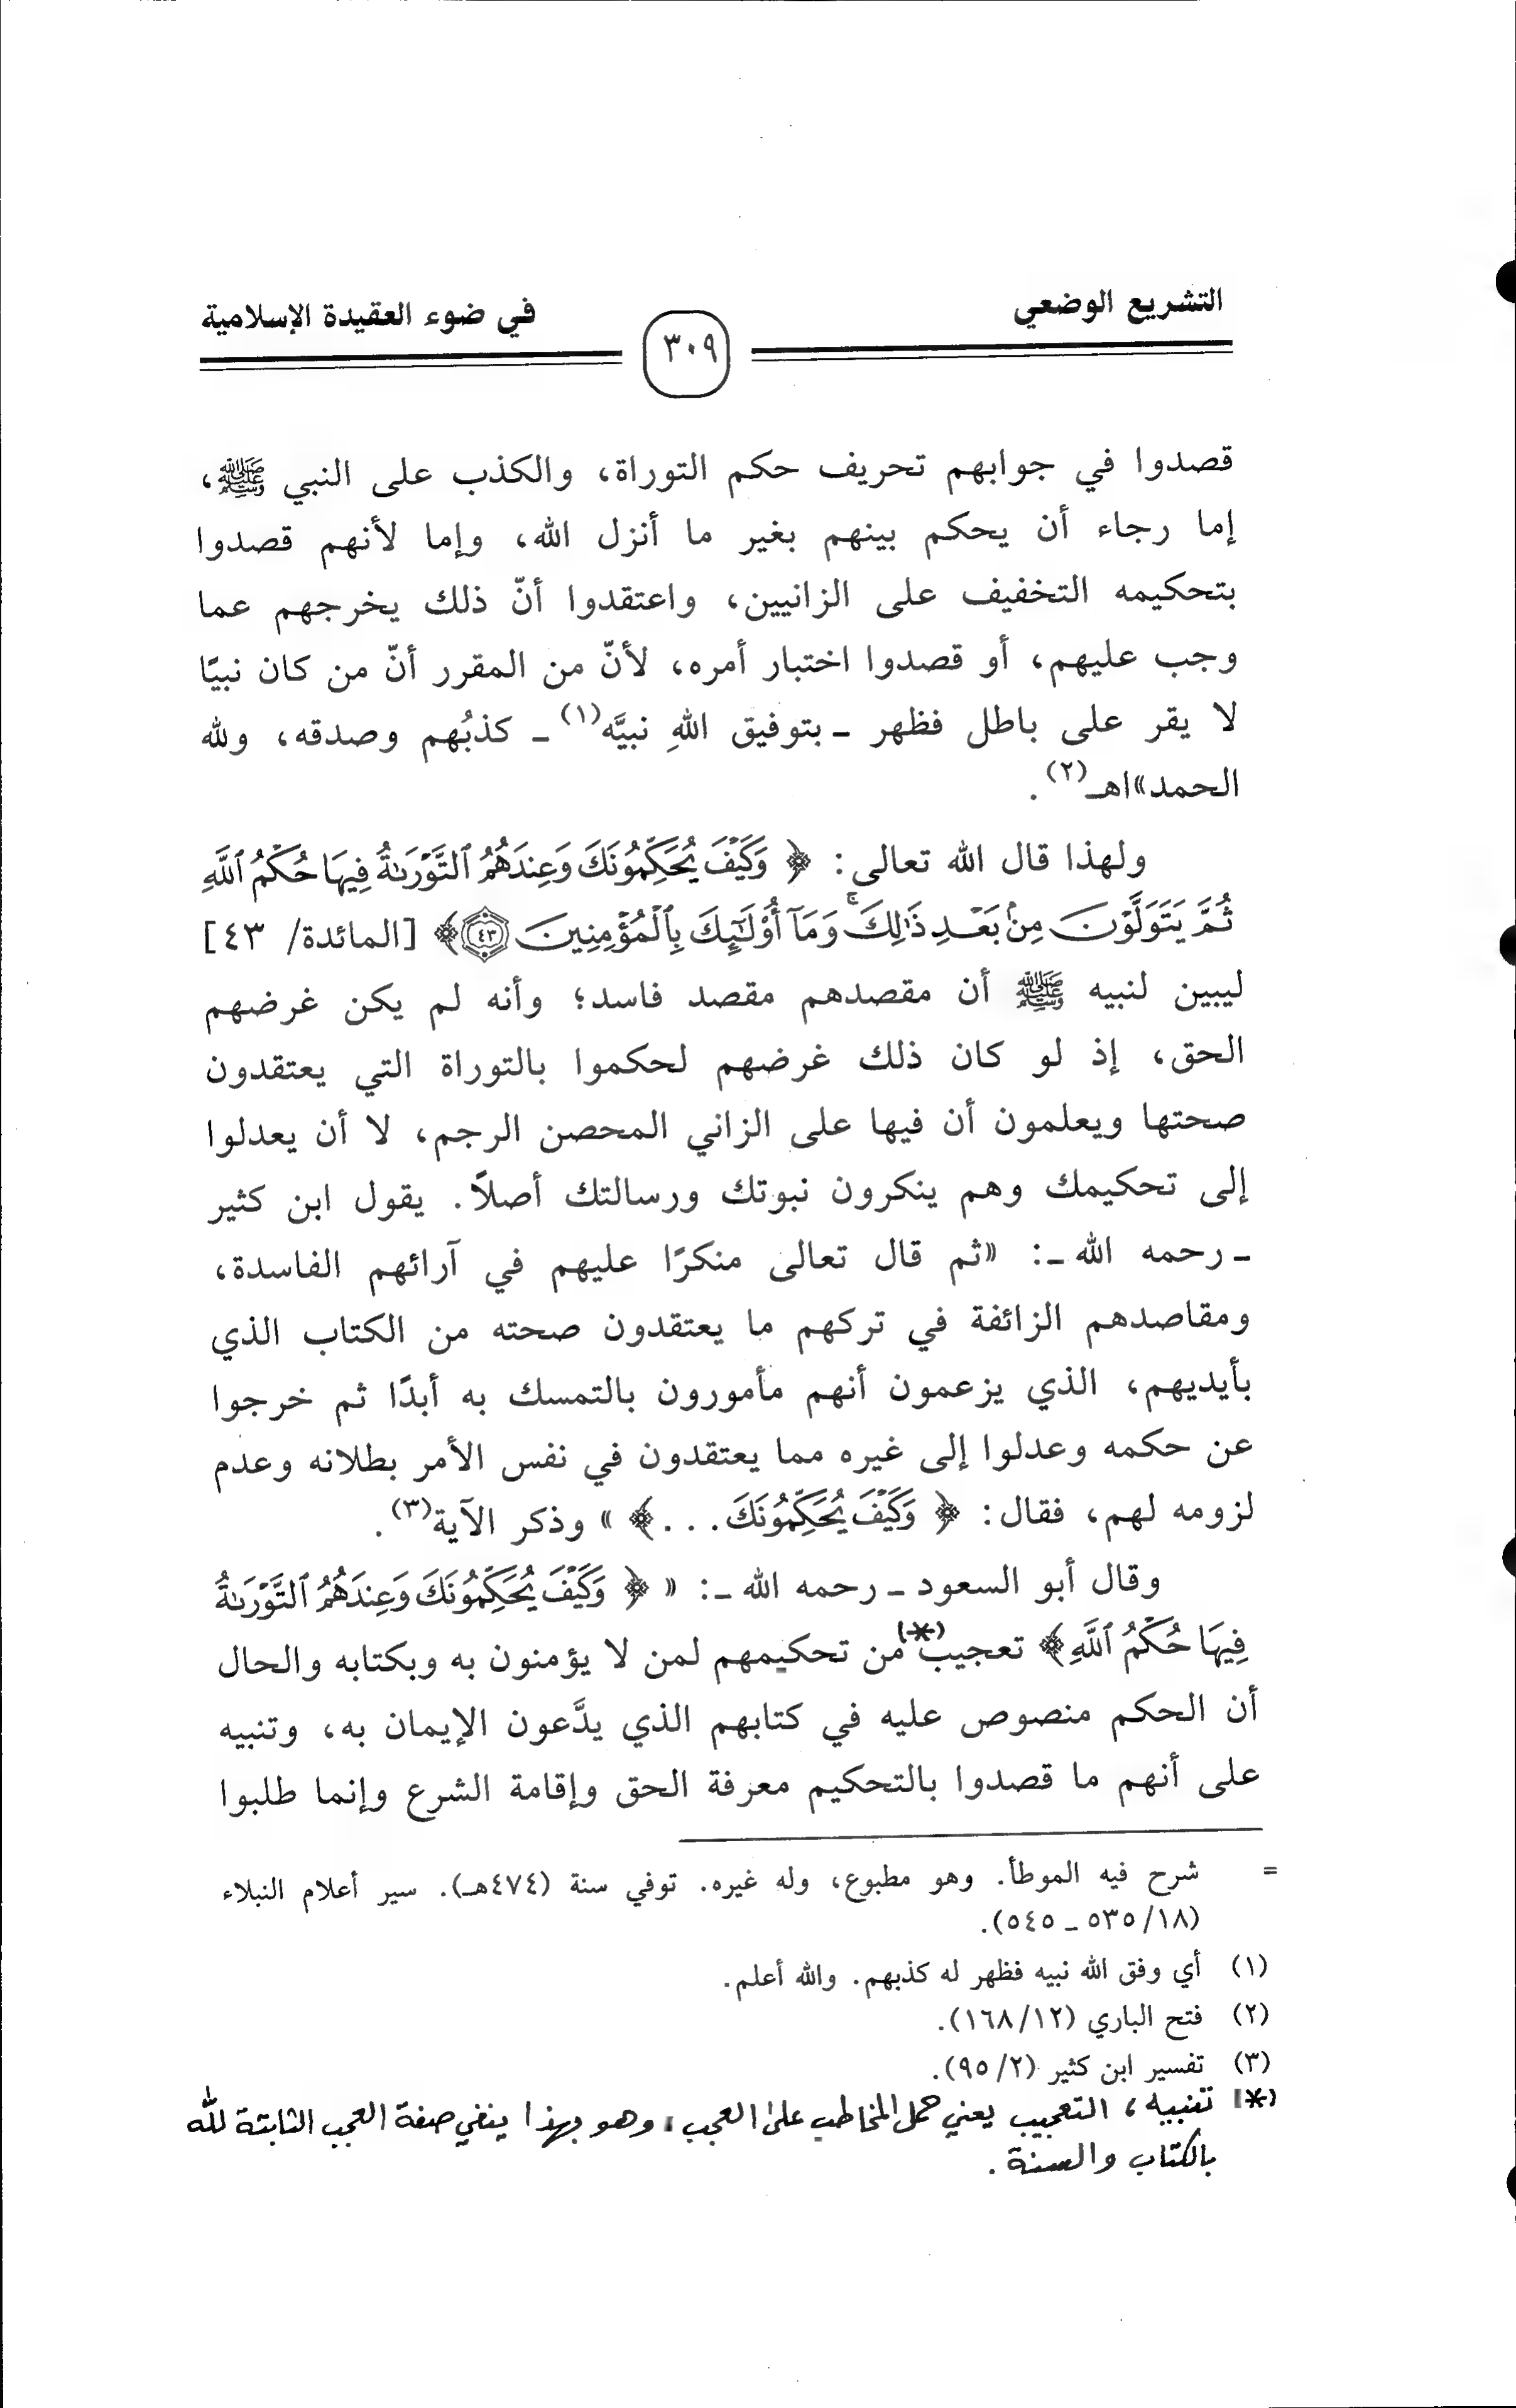 التشريع الوضعي
٣٠٩
في ضوء العقيدة الإسلامية
قصدوا في جوابهم تحريف حكم التوراة، والكذب على النبي ﷺ،
إما رجاء أن يحكم بينهم بغير ما أنزل الله، وإما لأنهم قصدوا
بتحكيمه التخفيف على الزانيين، واعتقدوا أنّ ذلك يخرجهم عما
وجب عليهم، أو قصدوا اختبار أمره، لأنّ من المقرر أنّ من كان نبيًا
لا يقر على باطل فظهر ـ بتوفيق اللهِ نبيَّه(١) ـ كذبُهم وصدقه، ولله
الحمد»اهـ(٢).
ولهذا قال الله تعالى: ﴿ وَكَيْفَ يُحَكِّمُونَكَ وَعِندَهُمُ ٱلتَّوْرَىٰةُ فِيهَا حُكْمُ ٱللَّهِ
ثُمَّ يَتَوَلَّوْنَ مِنۢ بَعْدِ ذَٰلِكَ ۚ وَمَآ أُو۟لَـٰٓئِكَ بِٱلْمُؤْمِنِينَ ٤٣﴾ [المائدة/ ٤٣]
ليبين لنبيه ﷺ أن مقصدهم مقصد فاسد؛ وأنه لم يكن غرضهم
الحق، إذ لو كان ذلك غرضهم لحكموا بالتوراة التي يعتقدون
صحتها ويعلمون أن فيها على الزاني المحصن الرجم، لا أن يعدلوا
إلى تحكيمك وهم ينكرون نبوتك ورسالتك أصلاً. يقول ابن كثير
ـ رحمه الله ـ: «ثم قال تعالى منكرًا عليهم في آرائهم الفاسدة،
ومقاصدهم الزائفة في تركهم ما يعتقدون صحته من الكتاب الذي
بأيديهم، الذي يزعمون أنهم مأمورون بالتمسك به أبدًا ثم خرجوا
عن حكمه وعدلوا إلى غيره مما يعتقدون في نفس الأمر بطلانه وعدم
لزومه لهم، فقال: ﴿ وَكَيْفَ يُحَكِّمُونَكَ . . . ﴾ » وذكر الآية(٣).
وقال أبو السعود ـ رحمه الله ـ: « ﴿ وَكَيْفَ يُحَكِّمُونَكَ وَعِندَهُمُ ٱلتَّوْرَىٰةُ
فِيهَا حُكْمُ ٱللَّهِ ﴾ تعجيب(*) من تحكيمهم لمن لا يؤمنون به وبكتابه والحال
أن الحكم منصوص عليه في كتابهم الذي يدَّعون الإيمان به، وتنبيه
على أنهم ما قصدوا بالتحكيم معرفة الحق وإقامة الشرع وإنما طلبوا
= شرح فيه الموطأ. وهو مطبوع، وله غيره. توفي سنة (٤٧٤هـ). سير أعلام النبلاء
(١٨/ ٥٣٥ ـ ٥٤٥).
(١) أي وفق الله نبيه فظهر له كذبهم. والله أعلم.
(٢) فتح الباري (١٢/ ١٦٨).
(٣) تفسير ابن كثير (٢/ ٩٥).
(*) تنبيه، التعجيب يعني حمل المخاطب على العجب، وهو بهذا ينفي صفة العجب الثابتة لله
بالكتاب والسنة.